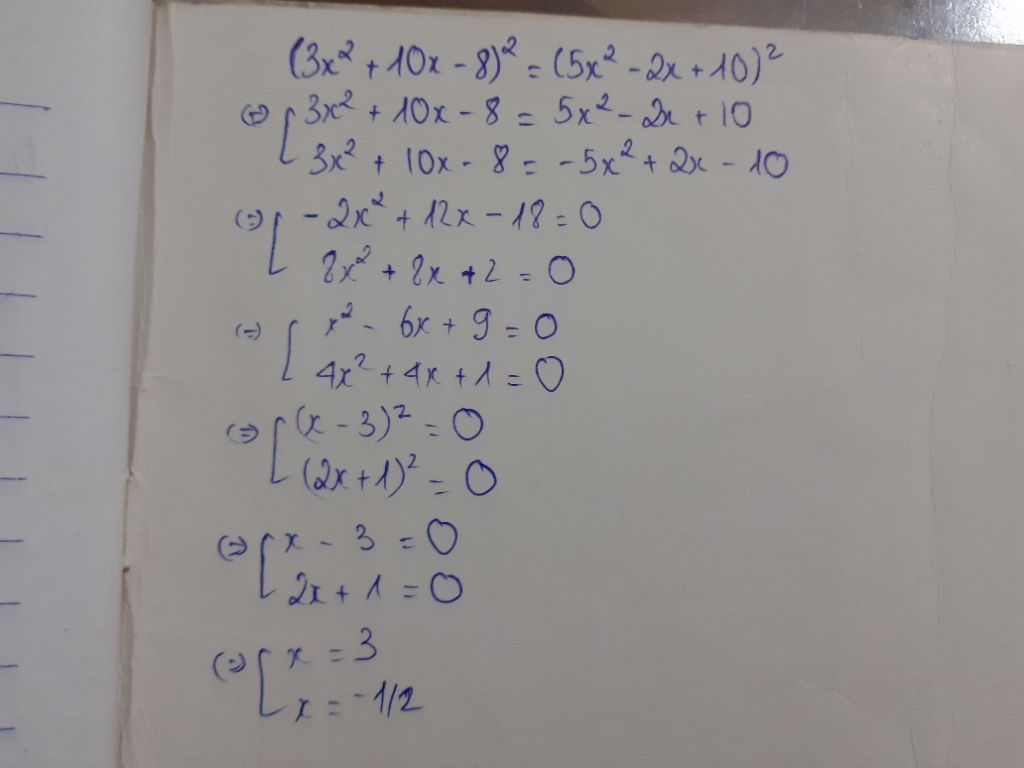 (3x² + 10x - 8)² = (5x² - 2x + 10)²
(=) [ 3x² + 10x - 8 = 5x² - 2x + 10
3x² + 10x - 8 = -5x² + 2x - 10
(=) [ - 2x² + 12x - 18 = 0
8x² + 8x + 2 = 0
(=) [ x² - 6x + 9 = 0
4x² + 4x + 1 = 0
(=) [ (x - 3)² = 0
(2x + 1)² = 0
(=) [ x - 3 = 0
2x + 1 = 0
(=) [ x = 3
x = -1/2